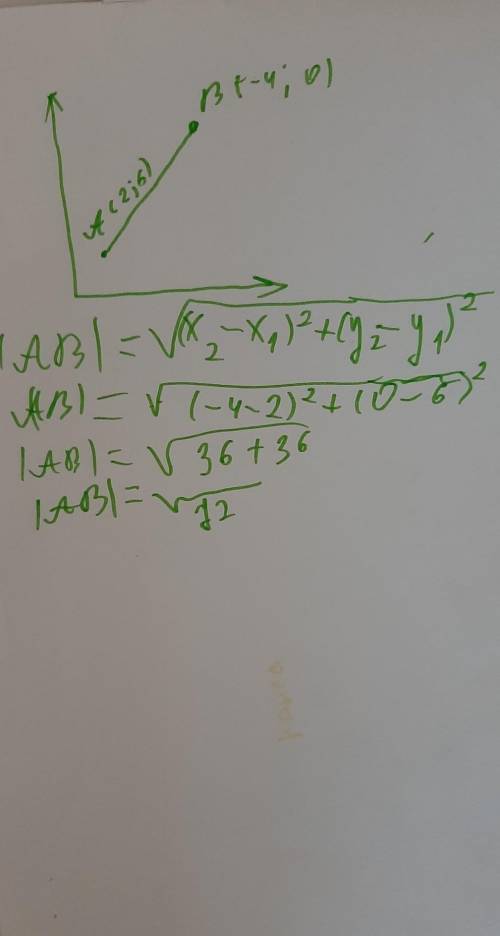 B(-4; 0)
A(2;6)
|AB| = √(x₂-x₁)²+(y₂-y₁)²
|AB| = √(-4-2)²+(0-6)²
|AB| = √36+36
|AB| = √72